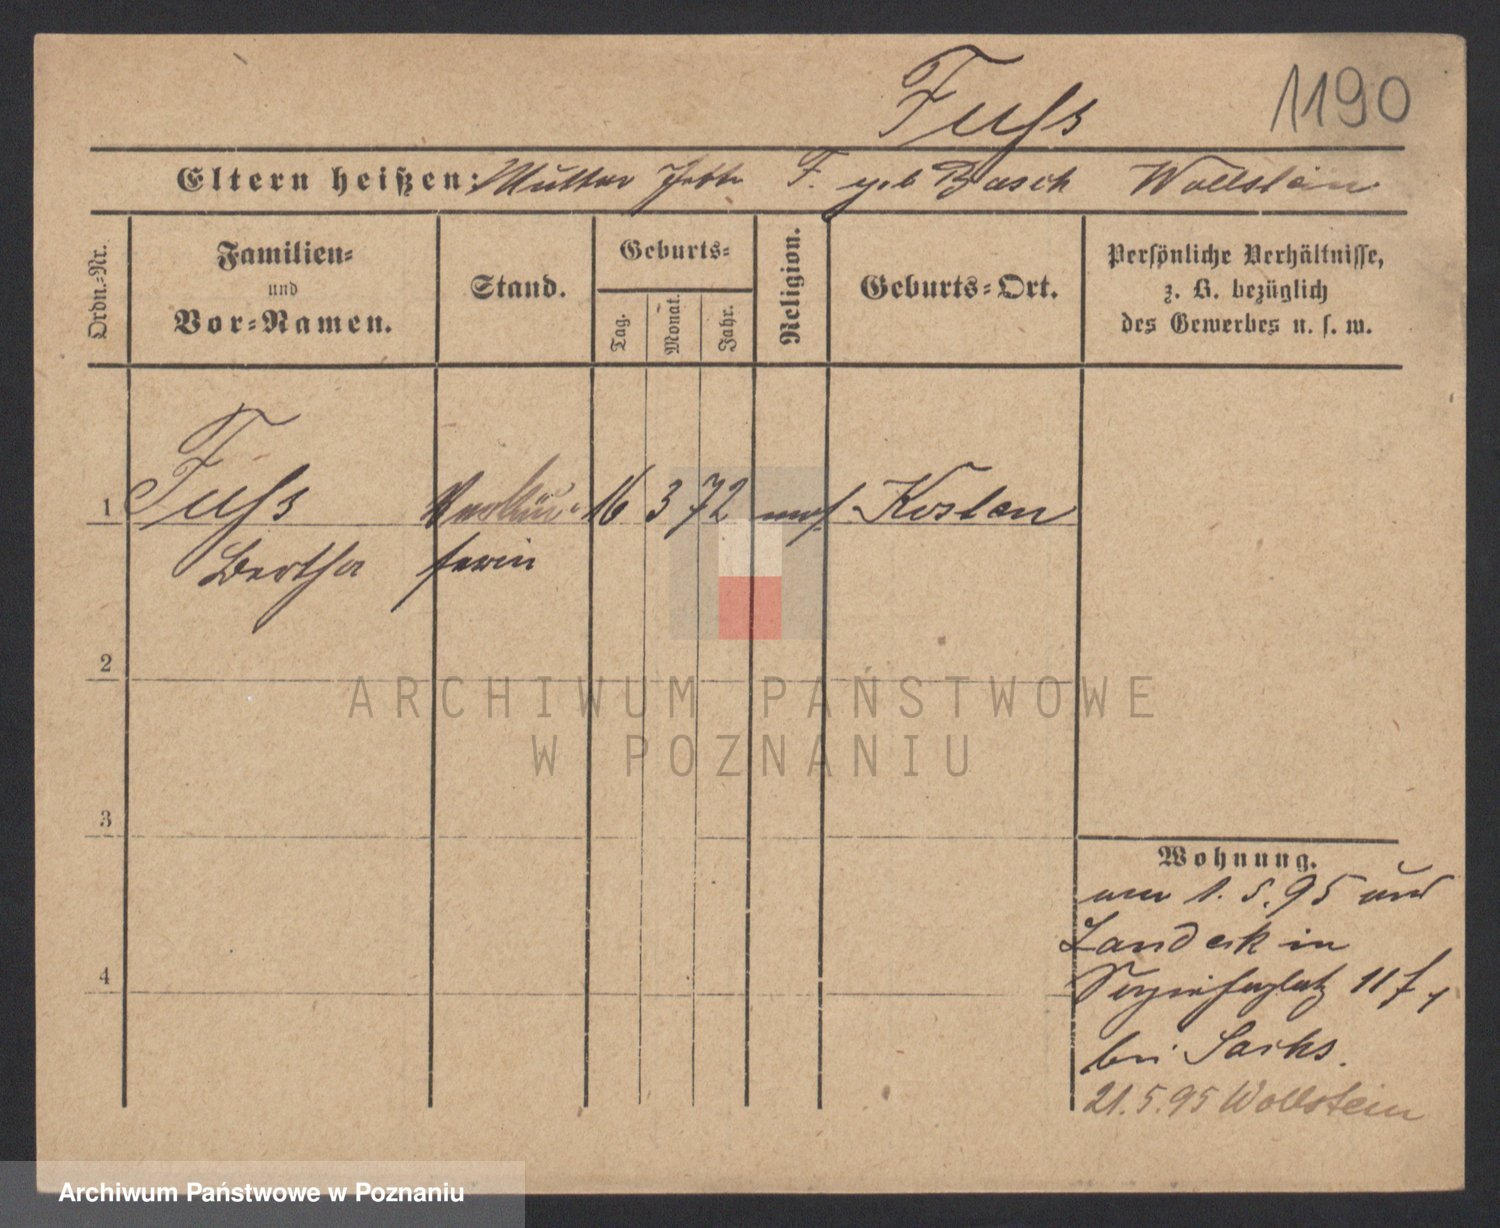 Fuss
1190
Eltern heißen: Mutter F. geb Basch Wollstein
Ordn.=Nr.
Familien=
und
Vor=Namen.
Stand.
Geburts=
Tag.
Monat.
Jahr.
Religion.
Geburts=Ort.
Persönliche Verhältnisse,
z. B. bezüglich
des Gewerbes u. s. w.
1 Fuss Verkäu= 16 3 72 mos Kosten
Bertha ferin
2
3
4
Wohnung.
am 1. 5. 95 aus
Landeck in
117
bei Sachs.
21.5.95 Wollstein
ARCHIWUM PAŃSTWOWE
W POZNANIU
Archiwum Państwowe w Poznaniu